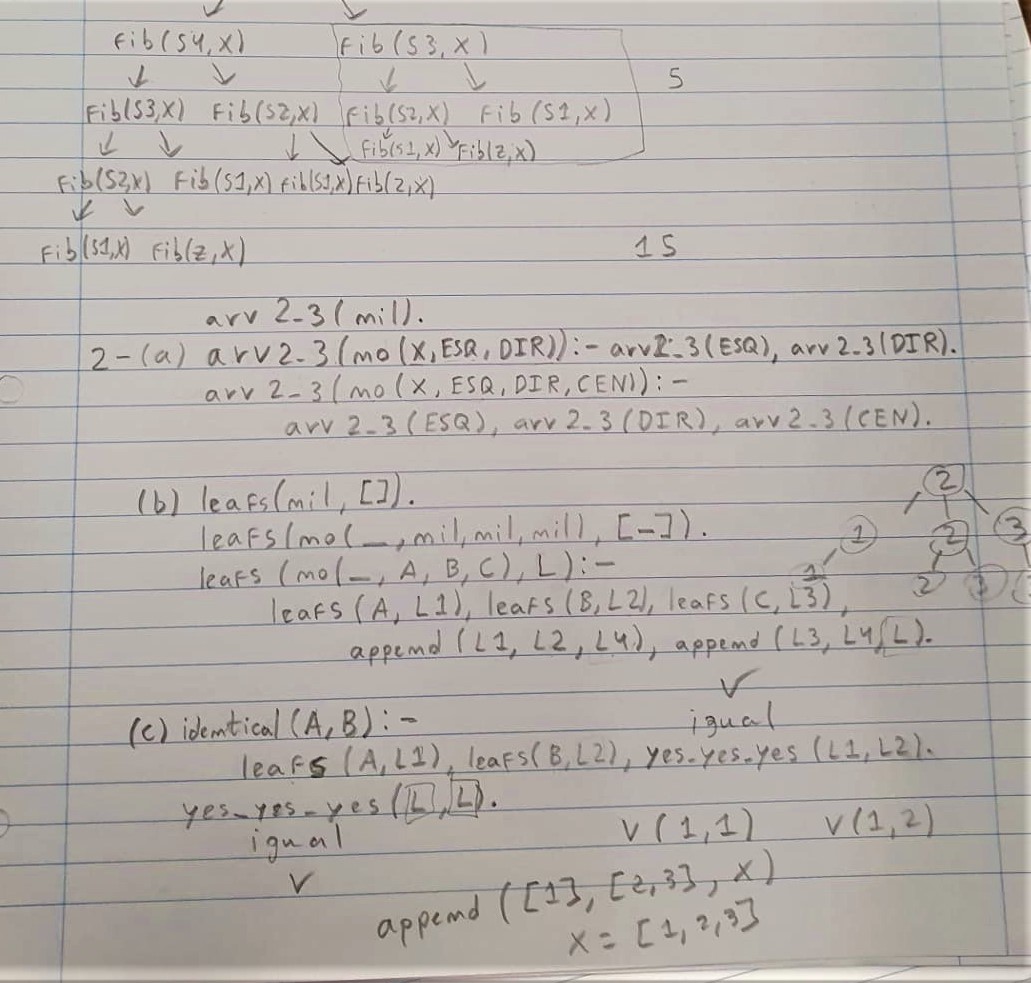 Fib(S4,X) Fib(S3,X)
5
Fib(S3,X) Fib(S2,X) Fib(S2,X) Fib(S1,X)
Fib(S1,X) Fib(Z,X)
Fib(S2,X) Fib(S1,X) Fib(S1,X) Fib(Z,X)
Fib(S1,X) Fib(Z,X)
15
arv 2_3(nil).
2-(a) arv 2_3(no(X,ESQ,DIR)):- arv 2_3(ESQ), arv 2_3(DIR).
arv 2_3(no(X,ESQ,DIR,CEN)):-
arv 2_3(ESQ), arv 2_3(DIR), arv 2_3(CEN).
(b) leafs(nil, []).
leafs(no(_,nil,nil,nil), [_]).
leafs(no(_, A, B, C), L):-
leafs(A, L1), leafs(B, L2), leafs(C, L3),
append(L1, L2, L4), append(L3, L4, L).
2
1 2 3
1 2 3
V
igual
(c) identical(A, B):-
leafs(A, L1), leafs(B, L2), yes_yes_yes(L1, L2).
yes_yes_yes(L, L).
igual
V
V(1,1) V(1,2)
append([1], [2,3], X)
X = [1,2,3]